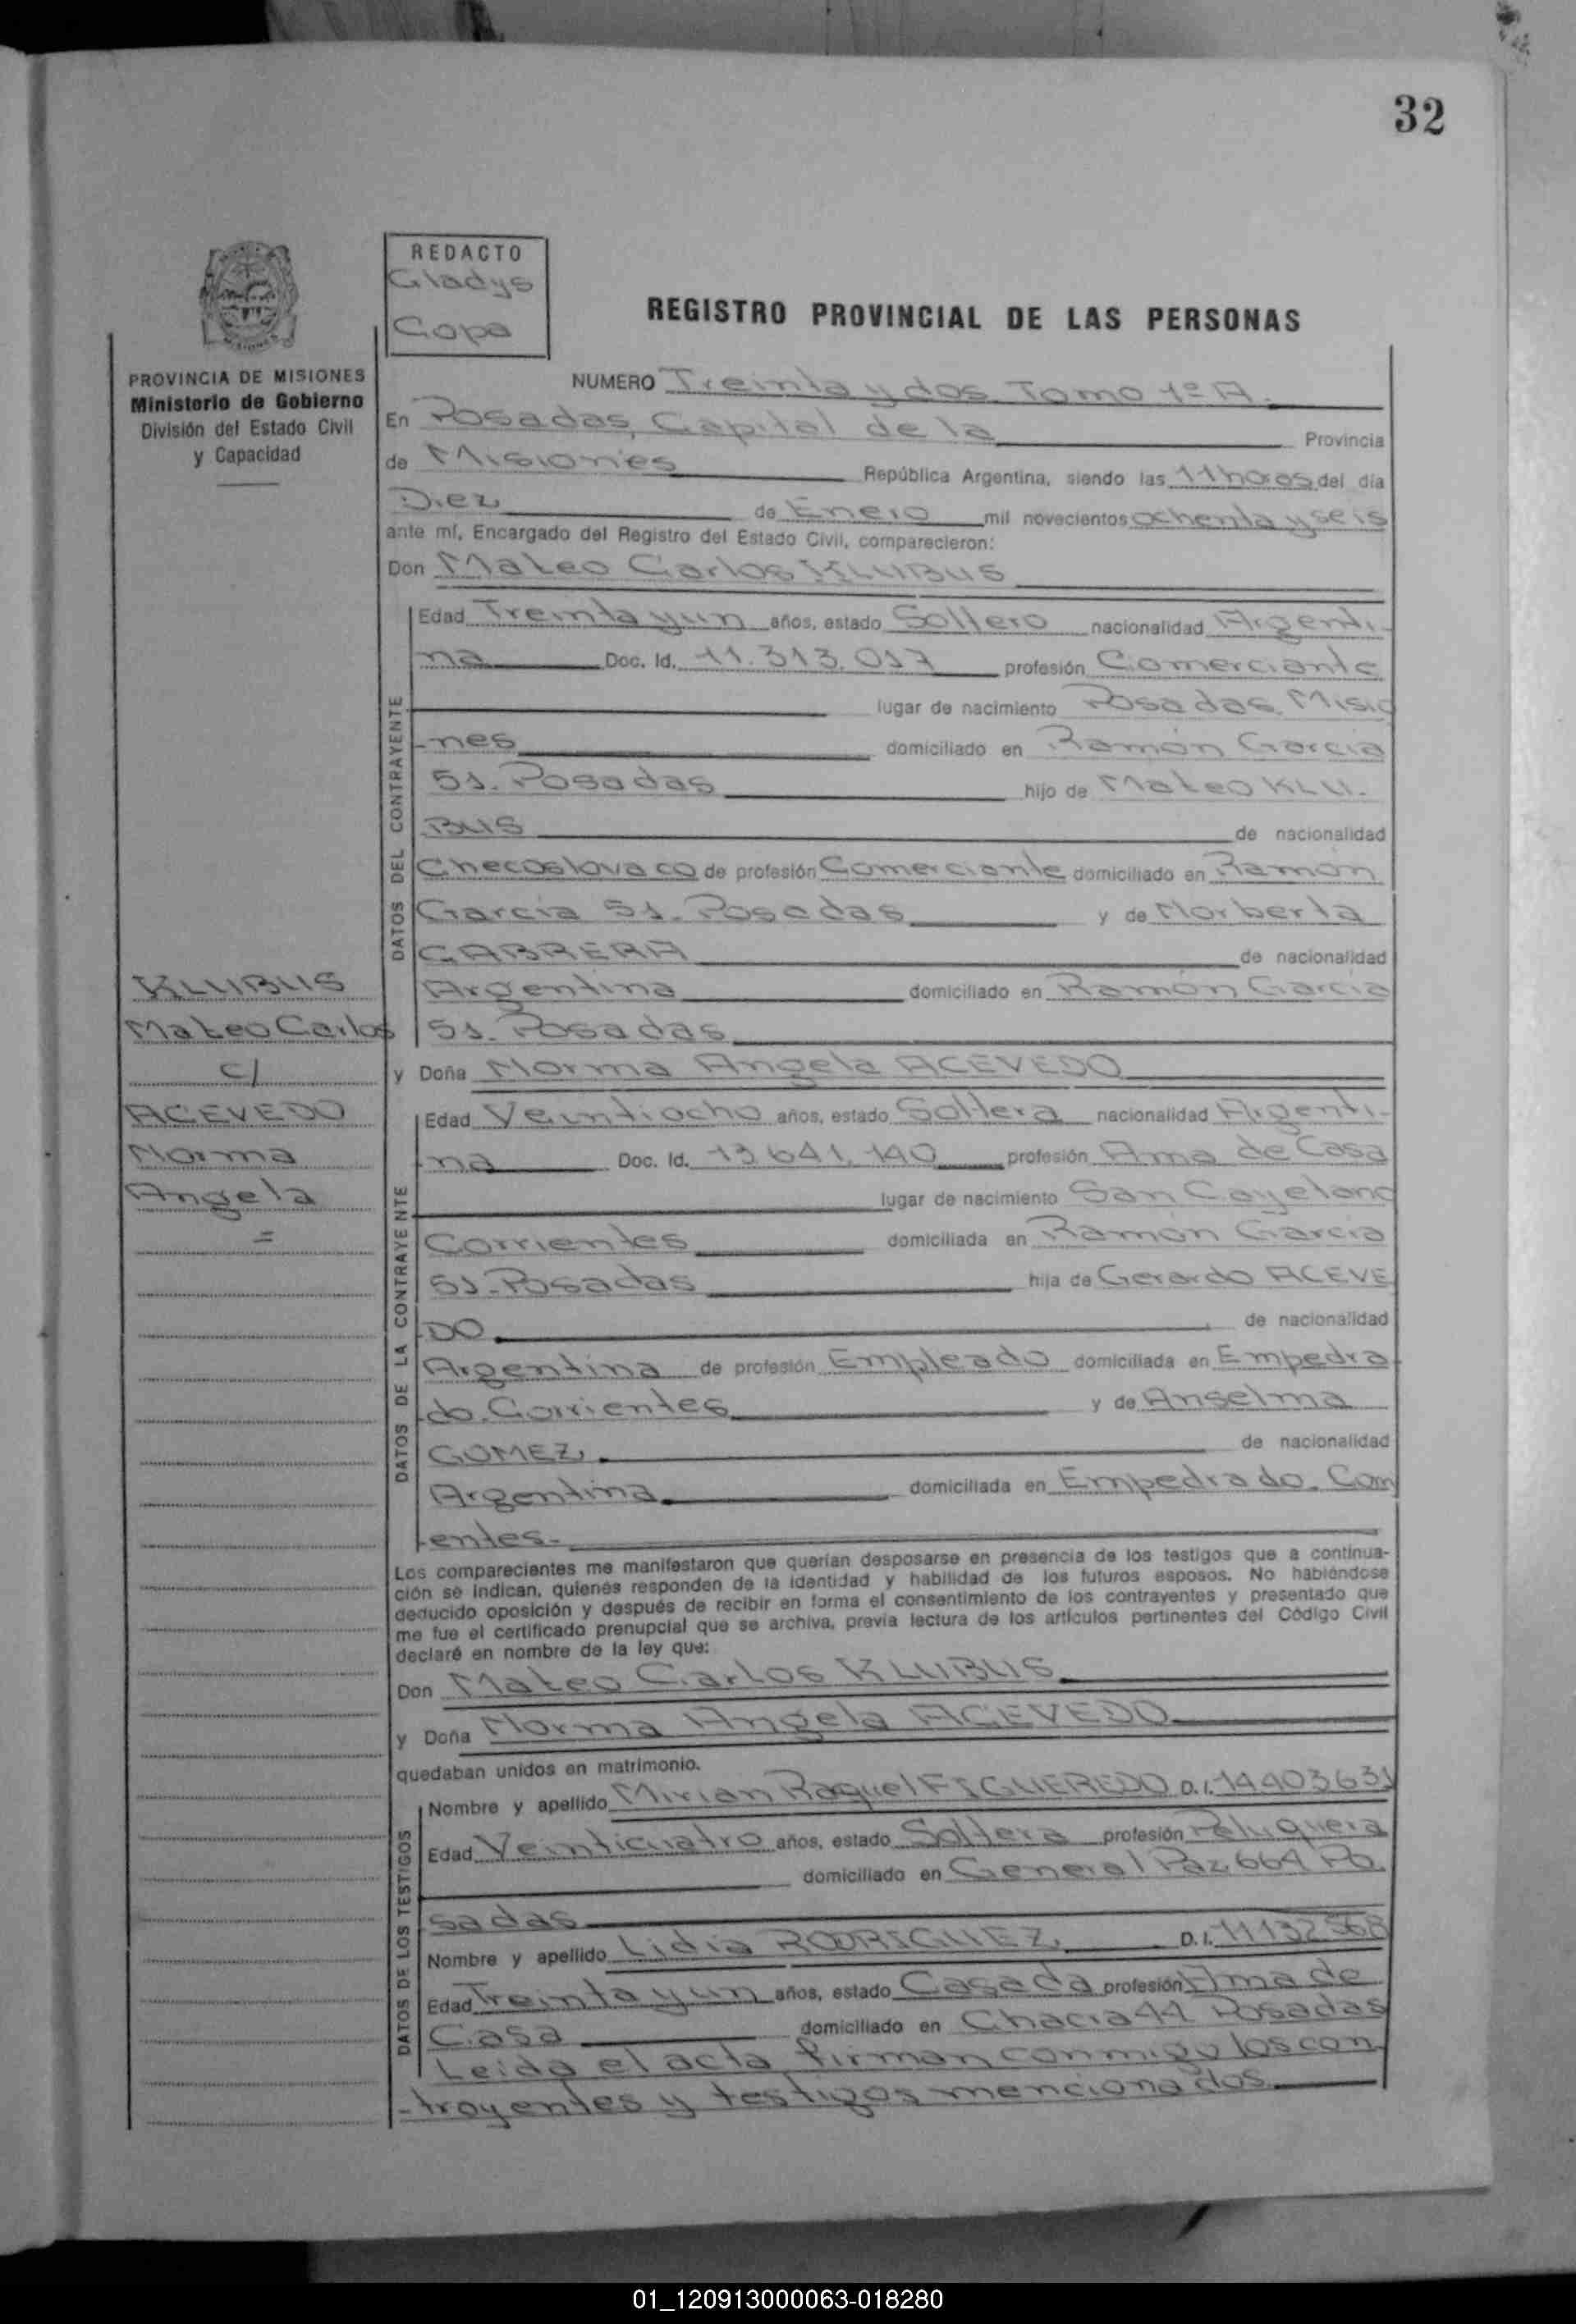 32
REDACTO
Gladys
Copa
REGISTRO PROVINCIAL DE LAS PERSONAS
PROVINCIA DE MISIONES
Ministerio de Gobierno
División del Estado Civil
y Capacidad
NUMERO Treinta y dos Tomo 1º A.
En Posadas, Capital de la Provincia
de Misiones República Argentina, siendo las 11 horas del día
Diez de Enero mil novecientos ochenta y seis
ante mí, Encargado del Registro del Estado Civil, comparecieron:
Don Mateo Carlos KLUBUS
DATOS DEL CONTRAYENTE
Edad Treinta y un años, estado Soltero nacionalidad Argenti-
na Doc. Id. 11.313.017 profesión Comerciante
lugar de nacimiento Posadas Misio
-nes domiciliado en Ramón García
51. Posadas hijo de Mateo KLU-
BUS de nacionalidad
Checoslovaco de profesión Comerciante domiciliado en Ramón
García 51. Posadas y de Norberta
CABRERA de nacionalidad
Argentina domiciliado en Ramón García
51. Posadas
KLUBUS
Mateo Carlos
c/
ACEVEDO
Norma
Angela
=
y Doña Norma Angela ACEVEDO
DATOS DE LA CONTRAYENTE
Edad Veintiocho años, estado Soltera nacionalidad Argenti-
na Doc. Id. 13.641.140 profesión Ama de Casa
lugar de nacimiento San Cayetano
Corrientes domiciliada en Ramón García
51-Posadas hija de Gerardo ACEVE
DO de nacionalidad
Argentina de profesión Empleado domiciliada en Empedra-
do. Corrientes y de Anselma
GOMEZ. de nacionalidad
Argentina domiciliada en Empedrado. Corri
entes.
Los comparecientes me manifestaron que querían desposarse en presencia de los testigos que a continua-
ción se indican, quienes responden de la identidad y habilidad de los futuros esposos. No habiéndose
deducido oposición y después de recibir en forma el consentimiento de los contrayentes y presentado que
me fue el certificado prenupcial que se archiva, previa lectura de los artículos pertinentes del Código Civil
declaré en nombre de la ley que:
Don Mateo Carlos KLUBUS
y Doña Norma Angela ACEVEDO
quedaban unidos en matrimonio.
DATOS DE LOS TESTIGOS
Nombre y apellido Mirian Raquel FIGUEREDO D.I. 14403631
Edad Veinticuatro años, estado Soltera profesión Peluquera
domiciliado en General Paz 664 Po
sadas
Nombre y apellido Lidia RODRIGUEZ. D.I. 11132568
Edad Treinta y un años, estado Casada profesión Ama de
Casa domiciliado en Chacra 44 Posadas
Leida el acta firman conmigo los con
-trayentes y testigos mencionados
01_120913000063-018280